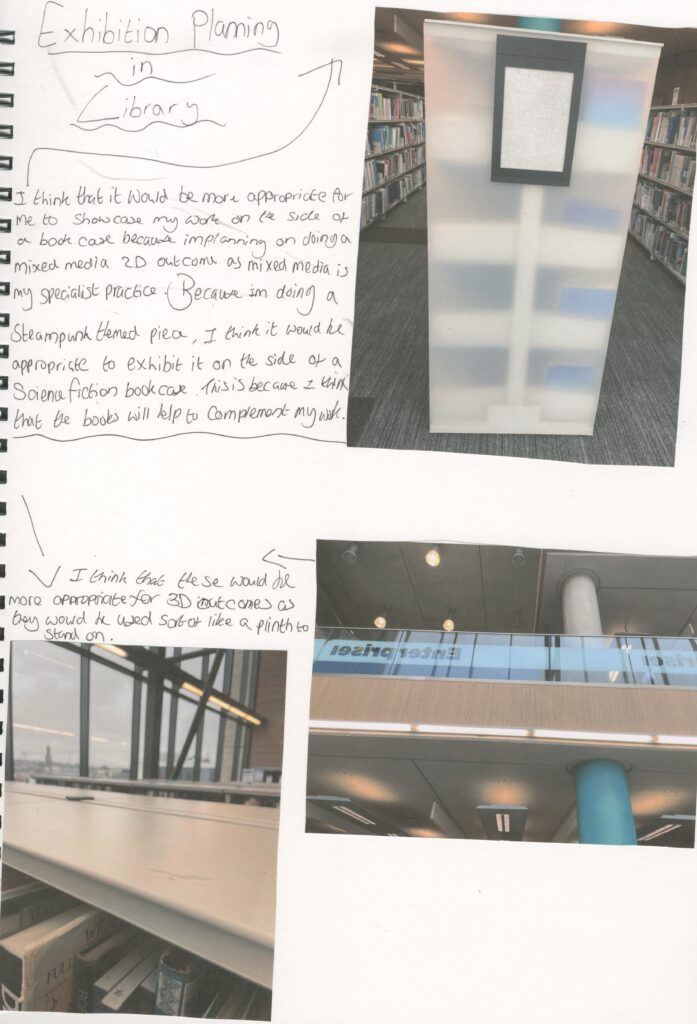 Exhibition Planning
in
Library
I think that it would be more appropriate for
me to showcase my work on the side of
a book case because im planning on doing a
mixed media 2D outcome as mixed media is
my specialist practice. Because im doing a
Steampunk themed piece, I think it would be
appropriate to exhibit it on the side of a
Science fiction bookcase. This is because I think
that the books will help to complement my work.
I think that these would be
more appropriate for 3D outcomes as
they would be used sort of like a plinth to
stand on.
Enterprise
rise
FULL